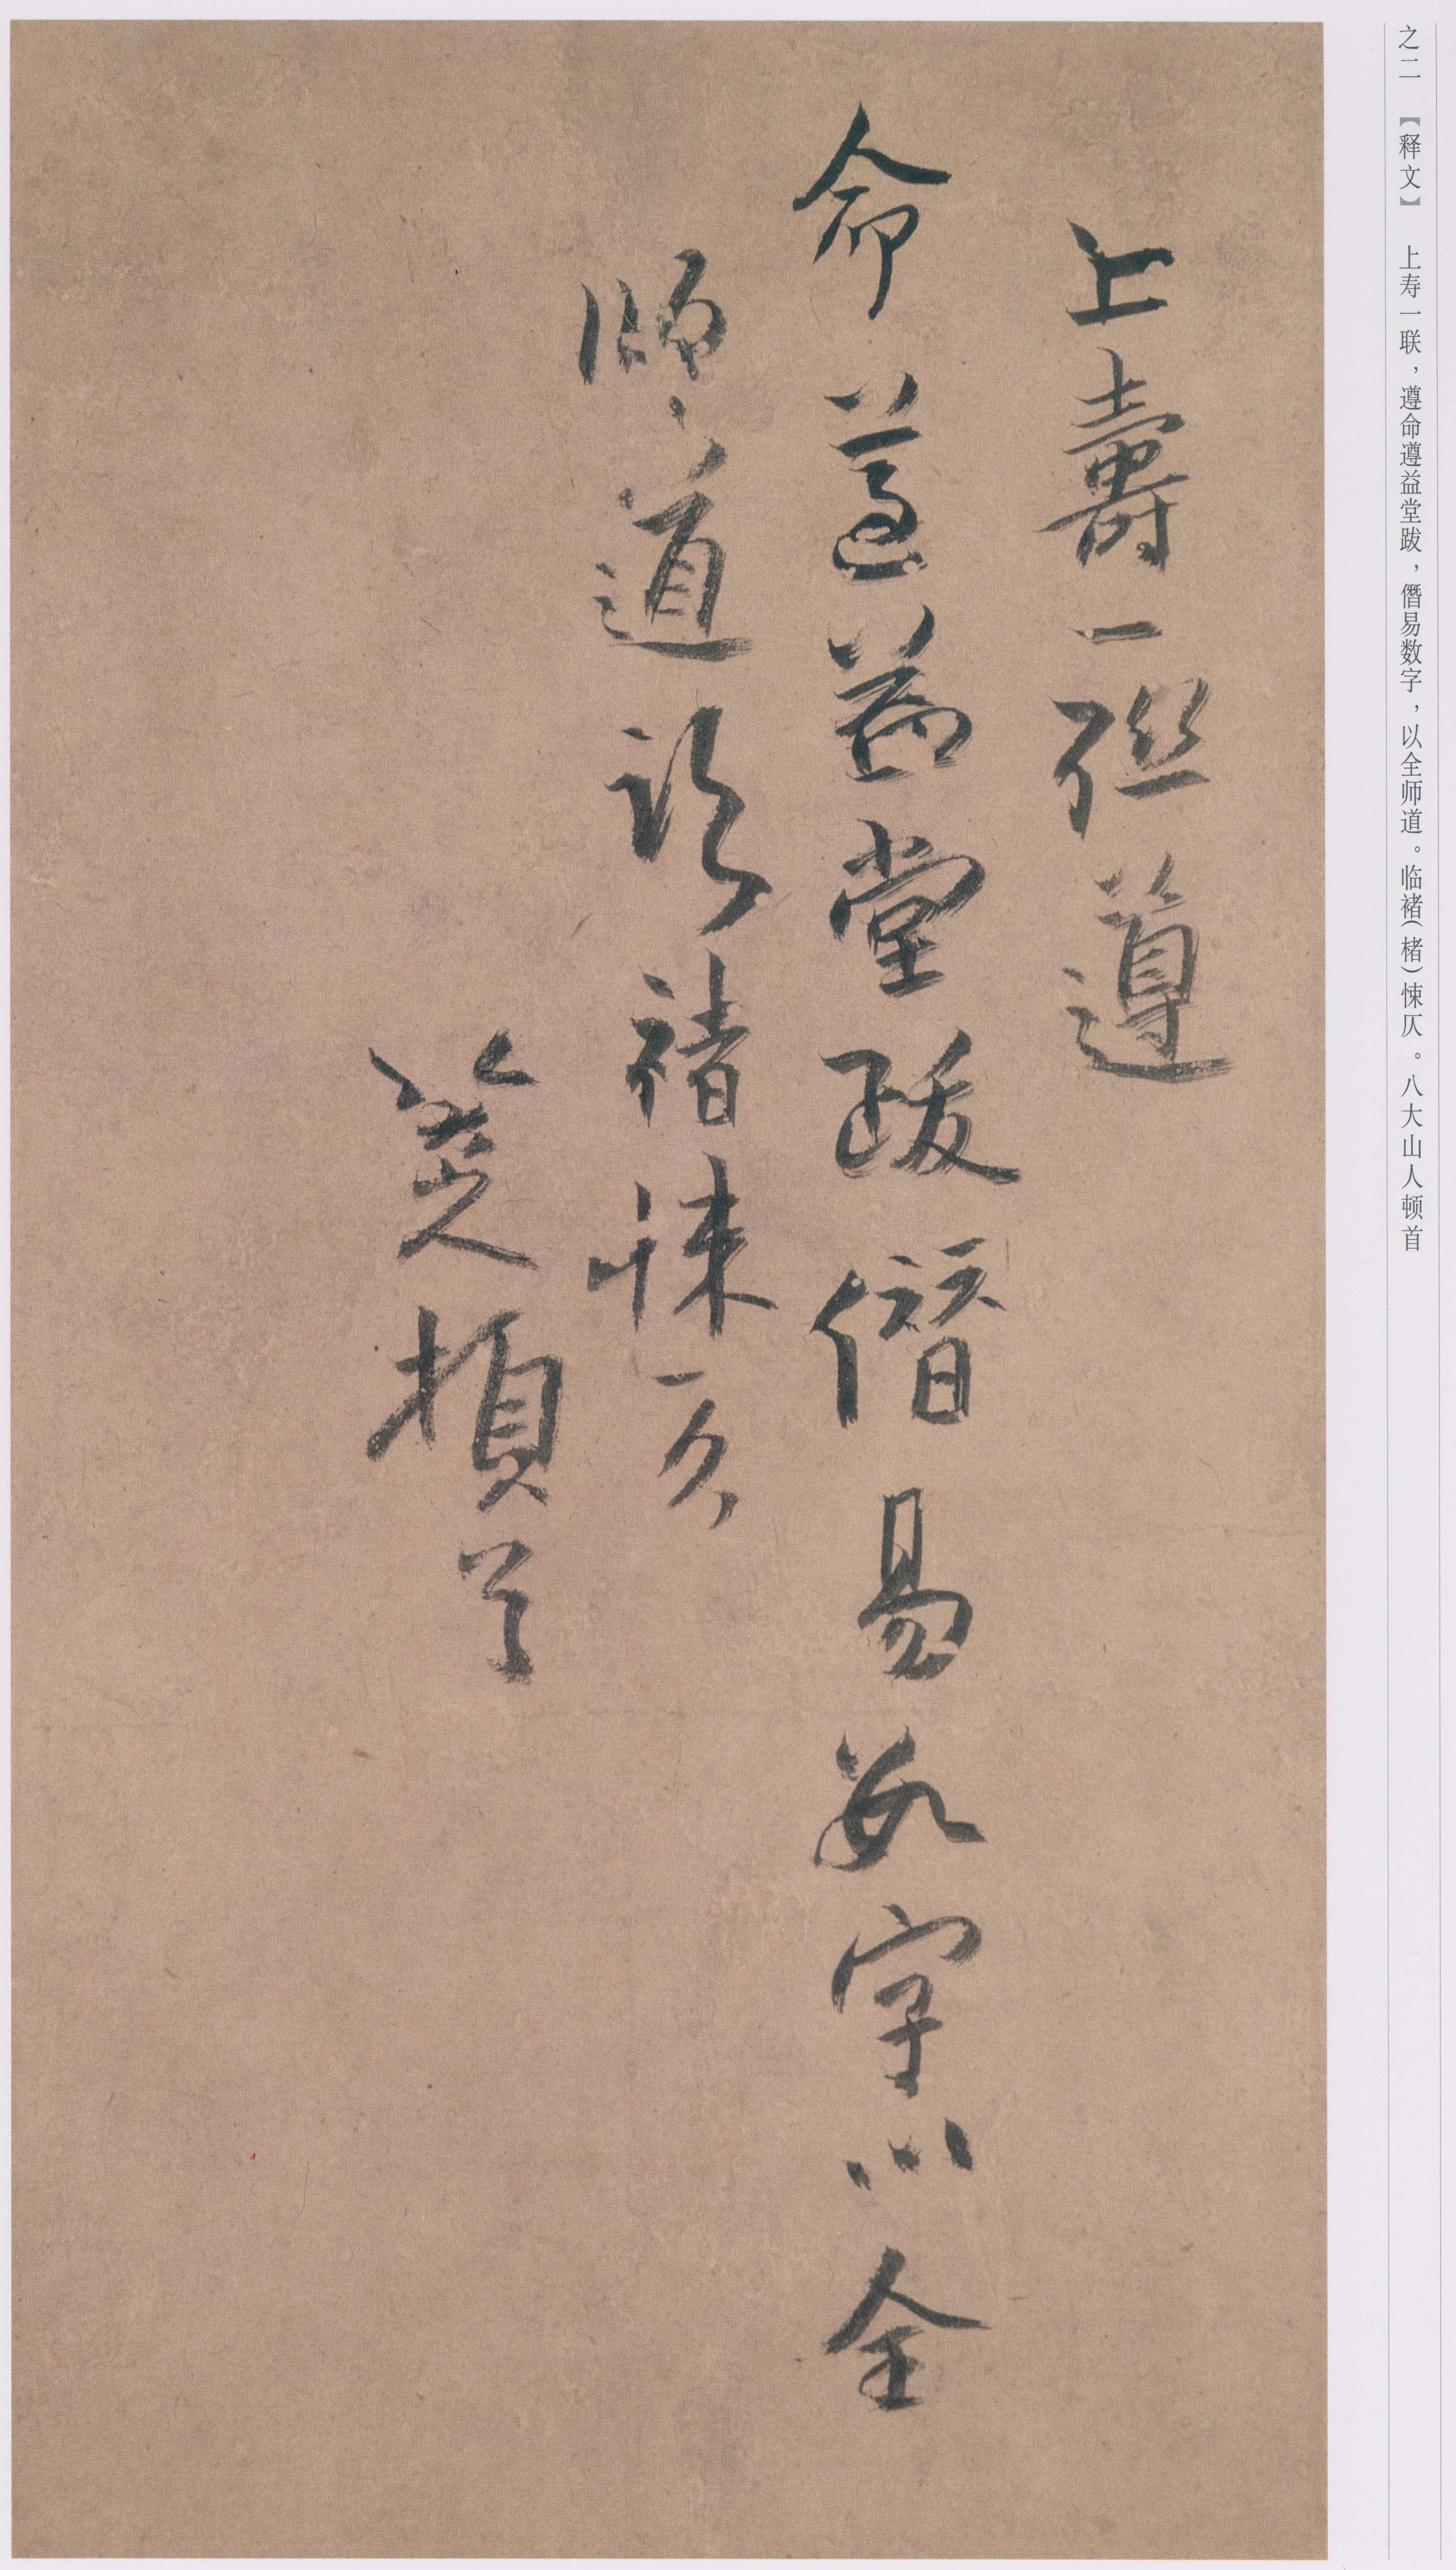 之二 【释文】 上寿一联，遵命遵益堂跋，僭易数字，以全师道。临褚（楮）悚仄。八大山人顿首
上壽一聯遵
命遵益堂跋僭易数字以全
師道臨褚悚仄
八大山人頓首